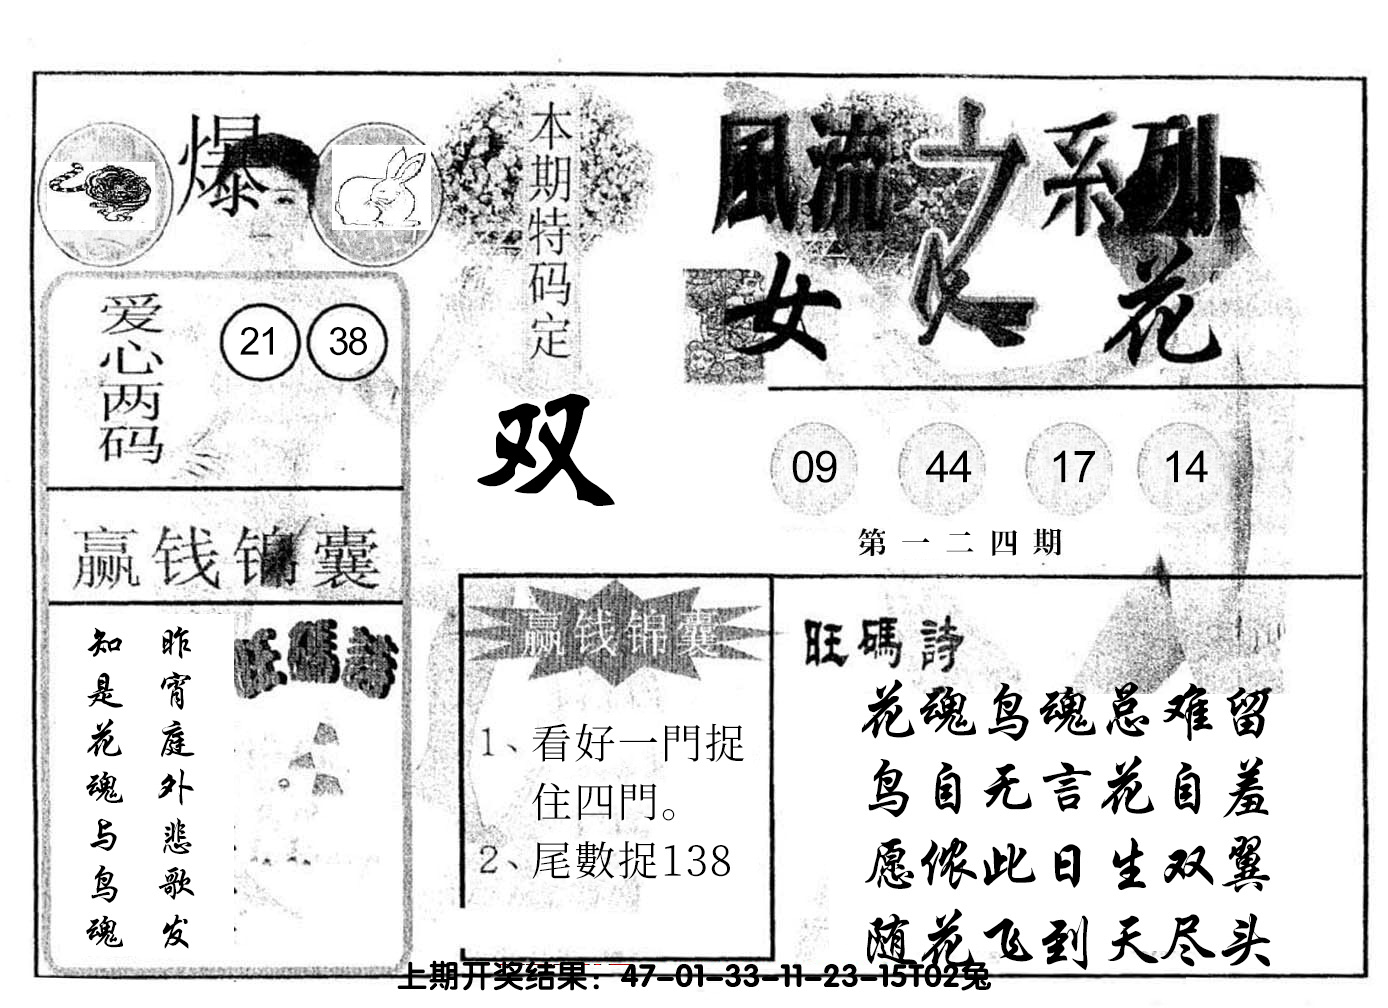 爆
本期特码定
双
爱心两码
21 38
赢钱锦囊
旺碼詩
昨宵庭外悲歌发
知是花魂与鸟魂
風流之系列
女人花
09 44 17 14
第一二四期
赢钱锦囊
1、看好一門捉
住四門。
2、尾數捉138
旺碼詩
花魂鸟魂总难留
鸟自无言花自羞
愿侬此日生双翼
随花飞到天尽头
上期开奖结果：47-01-33-11-23-15T02兔